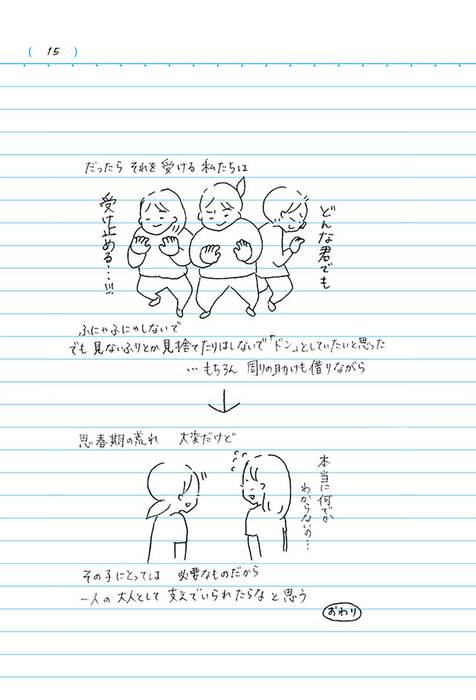 ( 15 )
だったら それを 受ける 私たちは
どんな君でも
受け止める…!!!
ふにゃふにゃしないで
でも 見ないふりとか 見捨てたりはしないで「ドン」としていたいと思った
… もちろん 周りの助けも借りながら
思春期の荒れ 大変だけど
本当に何でか
わからないの…
その子にとっては 必要なものだから
一人の大人として 支えていられたらな と思う
おわり